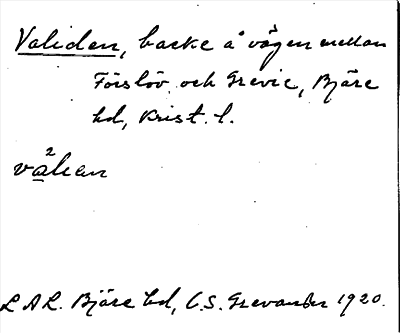 Validen, backe å vägen mellan
Förslöv och Grevie, Bjäre
hd, Krist. l.
L A L. Bjäre hd, C.S. Grevander 1920.